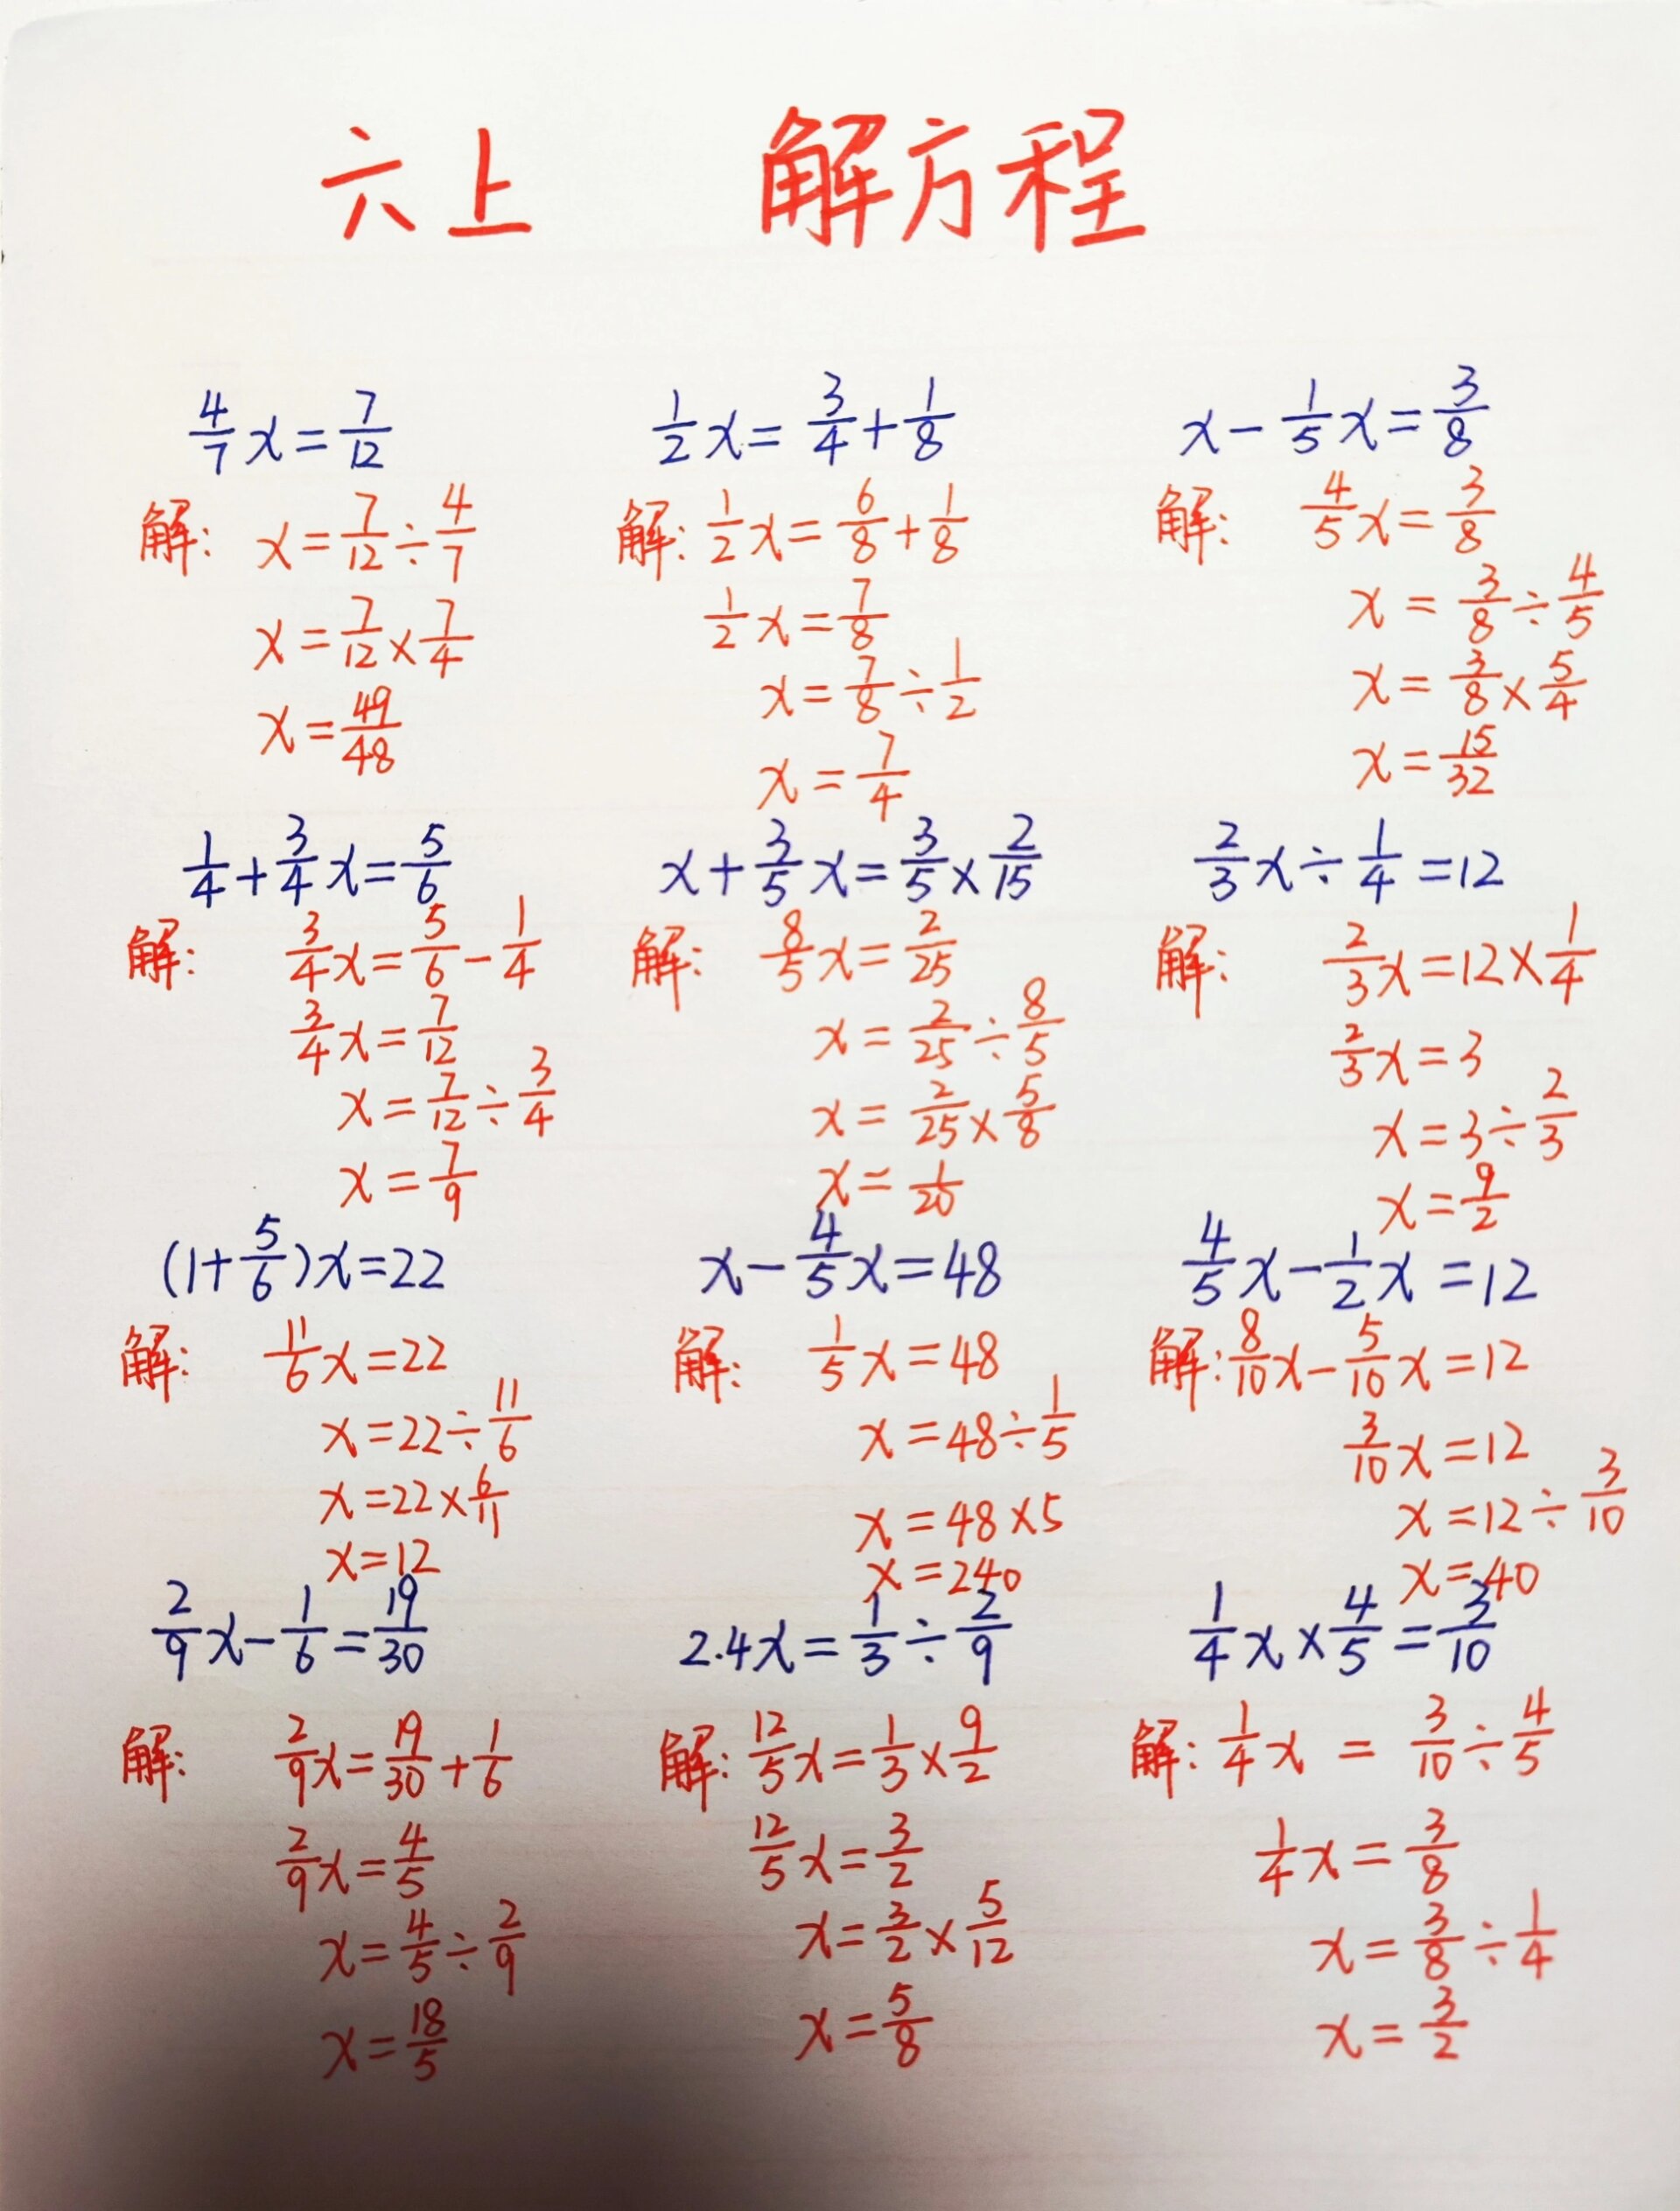 六上 解方程
4/7 x = 7/12
解: x = 7/12 ÷ 4/7
x = 7/12 × 7/4
x = 49/48
1/2 x = 3/4 + 1/8
解: 1/2 x = 6/8 + 1/8
1/2 x = 7/8
x = 7/8 ÷ 1/2
x = 7/4
x - 1/5 x = 3/8
解: 4/5 x = 3/8
x = 3/8 ÷ 4/5
x = 3/8 × 5/4
x = 15/32
1/4 + 3/4 x = 5/6
解: 3/4 x = 5/6 - 1/4
3/4 x = 7/12
x = 7/12 ÷ 3/4
x = 7/9
x + 3/5 x = 3/5 × 2/15
解: 8/5 x = 2/25
x = 2/25 ÷ 8/5
x = 2/25 × 5/8
x = 1/20
2/3 x ÷ 1/4 = 12
解: 2/3 x = 12 × 1/4
2/3 x = 3
x = 3 ÷ 2/3
x = 9/2
(1 + 5/6) x = 22
解: 11/6 x = 22
x = 22 ÷ 11/6
x = 22 × 6/11
x = 12
x - 4/5 x = 48
解: 1/5 x = 48
x = 48 ÷ 1/5
x = 48 × 5
x = 240
4/5 x - 1/2 x = 12
解: 8/10 x - 5/10 x = 12
3/10 x = 12
x = 12 ÷ 3/10
x = 40
2/9 x - 1/6 = 19/30
解: 2/9 x = 19/30 + 1/6
2/9 x = 4/5
x = 4/5 ÷ 2/9
x = 18/5
2.4x = 1/3 ÷ 2/9
解: 12/5 x = 1/3 × 9/2
12/5 x = 3/2
x = 3/2 × 5/12
x = 5/8
1/4 x × 4/5 = 3/10
解: 1/4 x = 3/10 ÷ 4/5
1/4 x = 3/8
x = 3/8 ÷ 1/4
x = 3/2